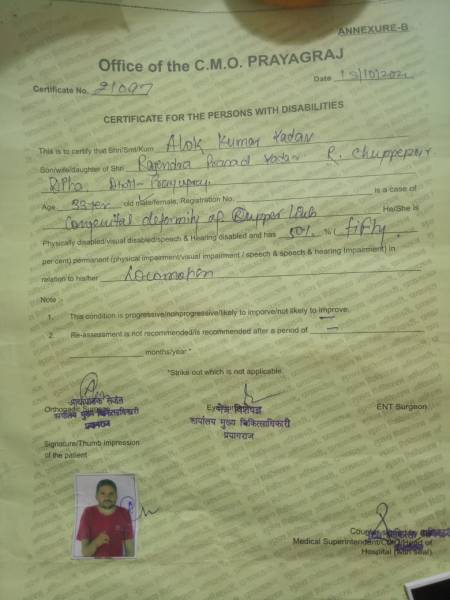 ANNEXURE-B
Office of the C.M.O. PRAYAGRAJ
Certificate No. 21097 Date 15/10/202
CERTIFICATE FOR THE PERSONS WITH DISABILITIES
This is to certify that Shri/Smt/Kum Alok Kumar Yadav
Son/wife/daughter of Shri Rajendra Prasad Yadav R. Chuppepur
Distt- Prayagraj
Age old male/female, Registration No. is a case of
Congenital deformity of upper Limb He/She is
Physically disabled/visual disabled/speech & Hearing disabled and has 50% % ( fifty
per cent) permanent (physical impairment/visual impairment / speech & speech & hearing Impairment) in
relation to his/her Locomotion
Note :-
1. This condition is progressive/nonprogressive/likely to imporve/not likely to improve.
2. Re-assessment is not recommended/is recommended after a period of
months/year*
*Strike out which is not applicable
कार्यालय मुख्य चिकित्साधिकारी
प्रयागराज
नेत्र विशेषज्ञ
कार्यालय मुख्य चिकित्साधिकारी
प्रयागराज
ENT Surgeon
Signature/Thumb impression
of the patient
Medical Superintendent/CMO/Head of
Hospital (with seal)